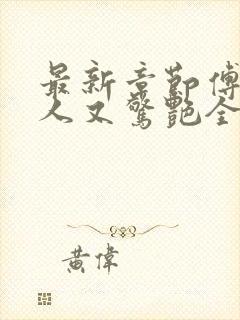 最新章節傅
人又驚艷全
黃偉